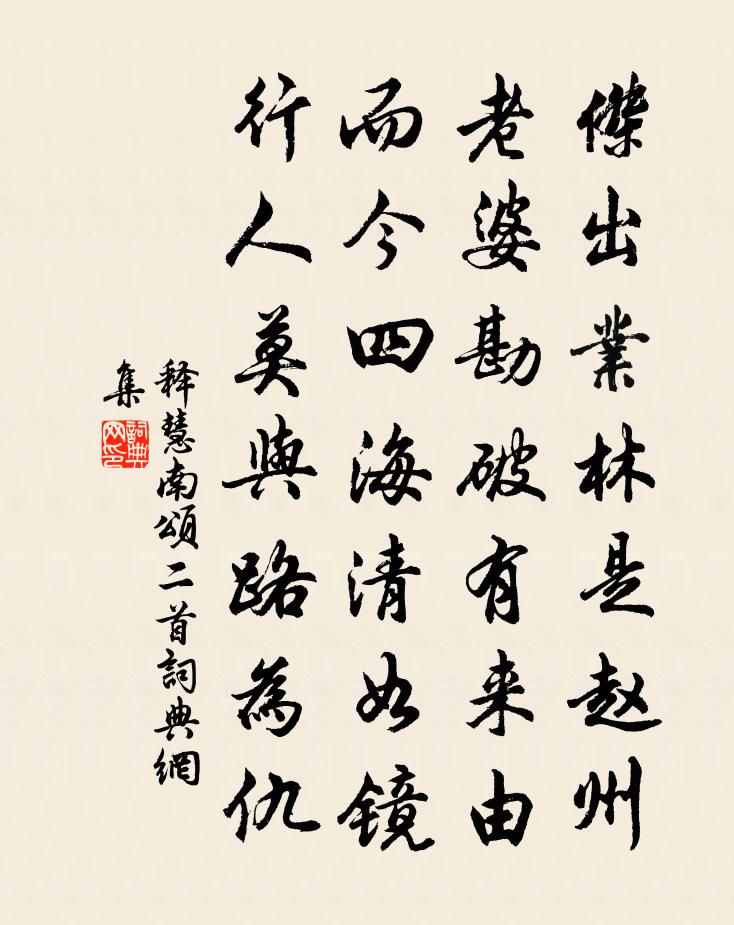 傑出業林是赵州
老婆勘破有来由
而今四海清如镜
行人莫與路為仇
释慧南頌二首詞典網
集
詞典網印